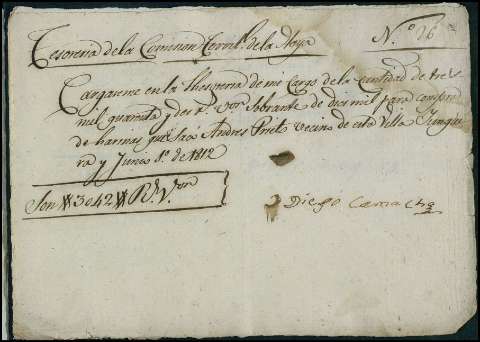 Tesoreria de la Comision Territ.l de la Rioja
N.o 26
Cargareme en la thesoreria de mi cargo de la cantidad de tres
mil quarenta y dos r.s v.on sobrante de diez mil para compra
de harinas que sacó Andres Prieto vecino de esta Villa
ra y Junio 1.o de 1812
Son 3042 R.s V.on
Diego Camacho